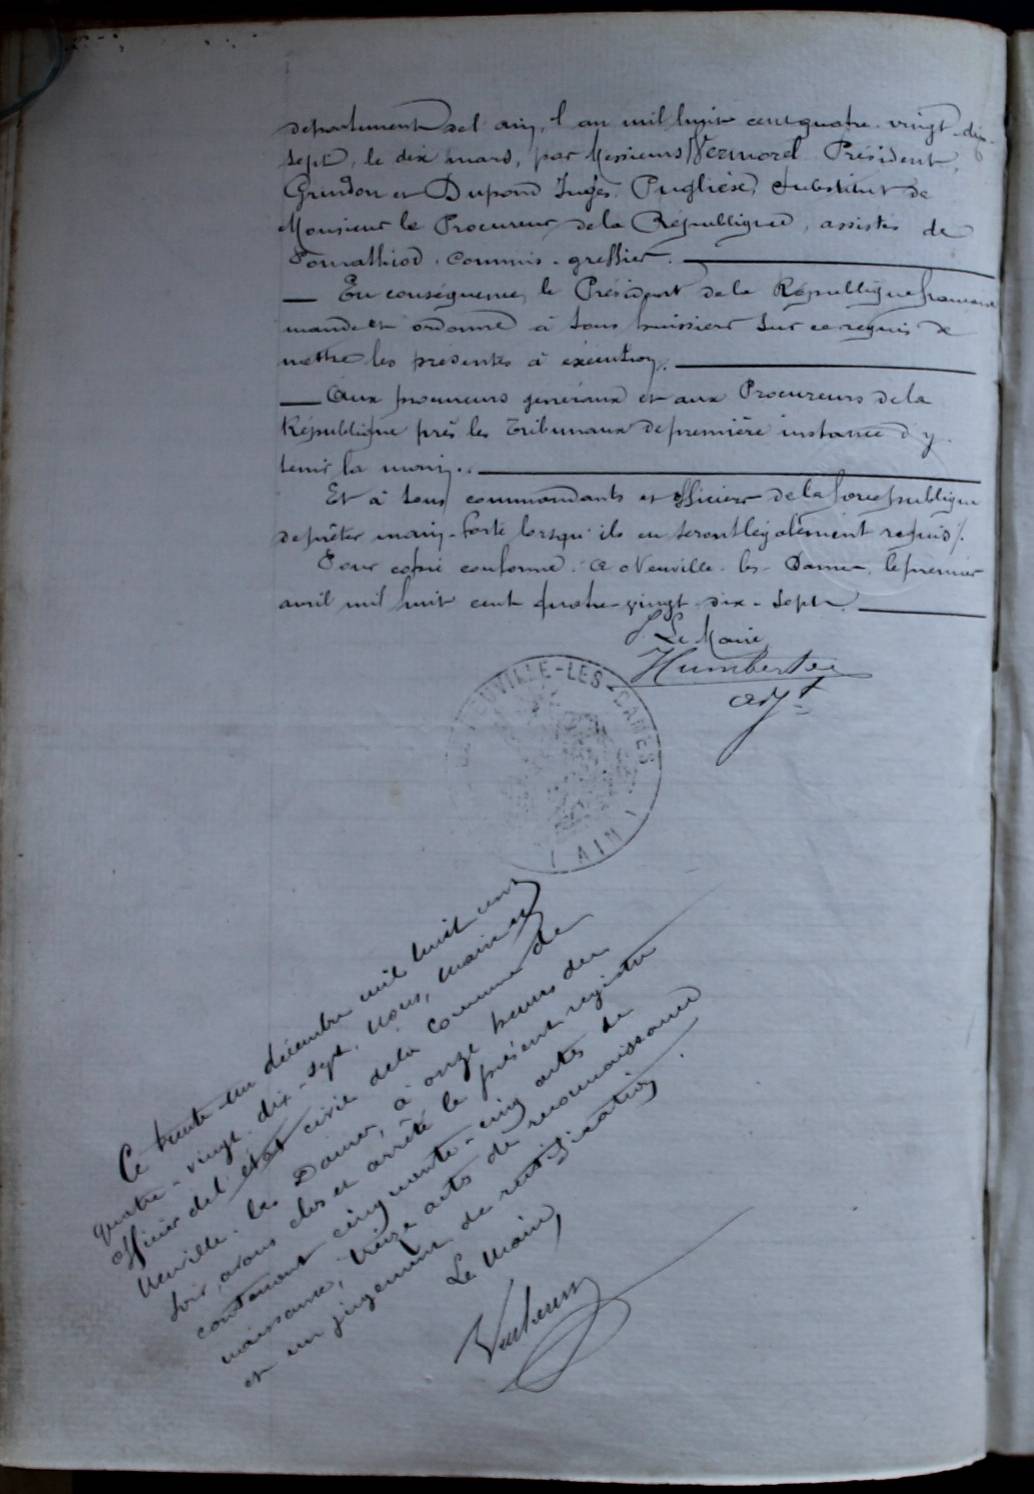 département de l'ain, l'an mil huit cent quatre-vingt-dix-
sept, le dix mars, par Messieurs Vermorel Président,
Grindon et Dupond Juges, Pugliesi, Substitut de
Monsieur le Procureur de la République, assistés de
commis-greffier.
En conséquence, le Président de la République française
mande et ordonne à tous huissiers sur ce requis de
mettre les présentes à exécution.
Aux procureurs généraux et aux Procureurs de la
République près les Tribunaux de première instance d'y
tenir la main.
Et à tous commandants et officiers de la force publique
de prêter main-forte lorsqu'ils en seront légalement requis /.
Pour copie conforme. A Neuville-les-Dames, le premier
avril mil huit cent quatre-vingt-dix-sept.
Le Maire,
adjt
NEUVILLE-LES-DAMES
(AIN)
Ce trente-un décembre mil huit cent
quatre-vingt-dix-sept, Nous, Maire et
officier de l'état civil de la commune de
Neuville-les Dames, à onze heures du
soir, avons clos et arrêté le présent registre
contenant cinquante-cinq actes de
naissance, treize actes de reconnaissance
et un jugement de rectification.
Le Maire,